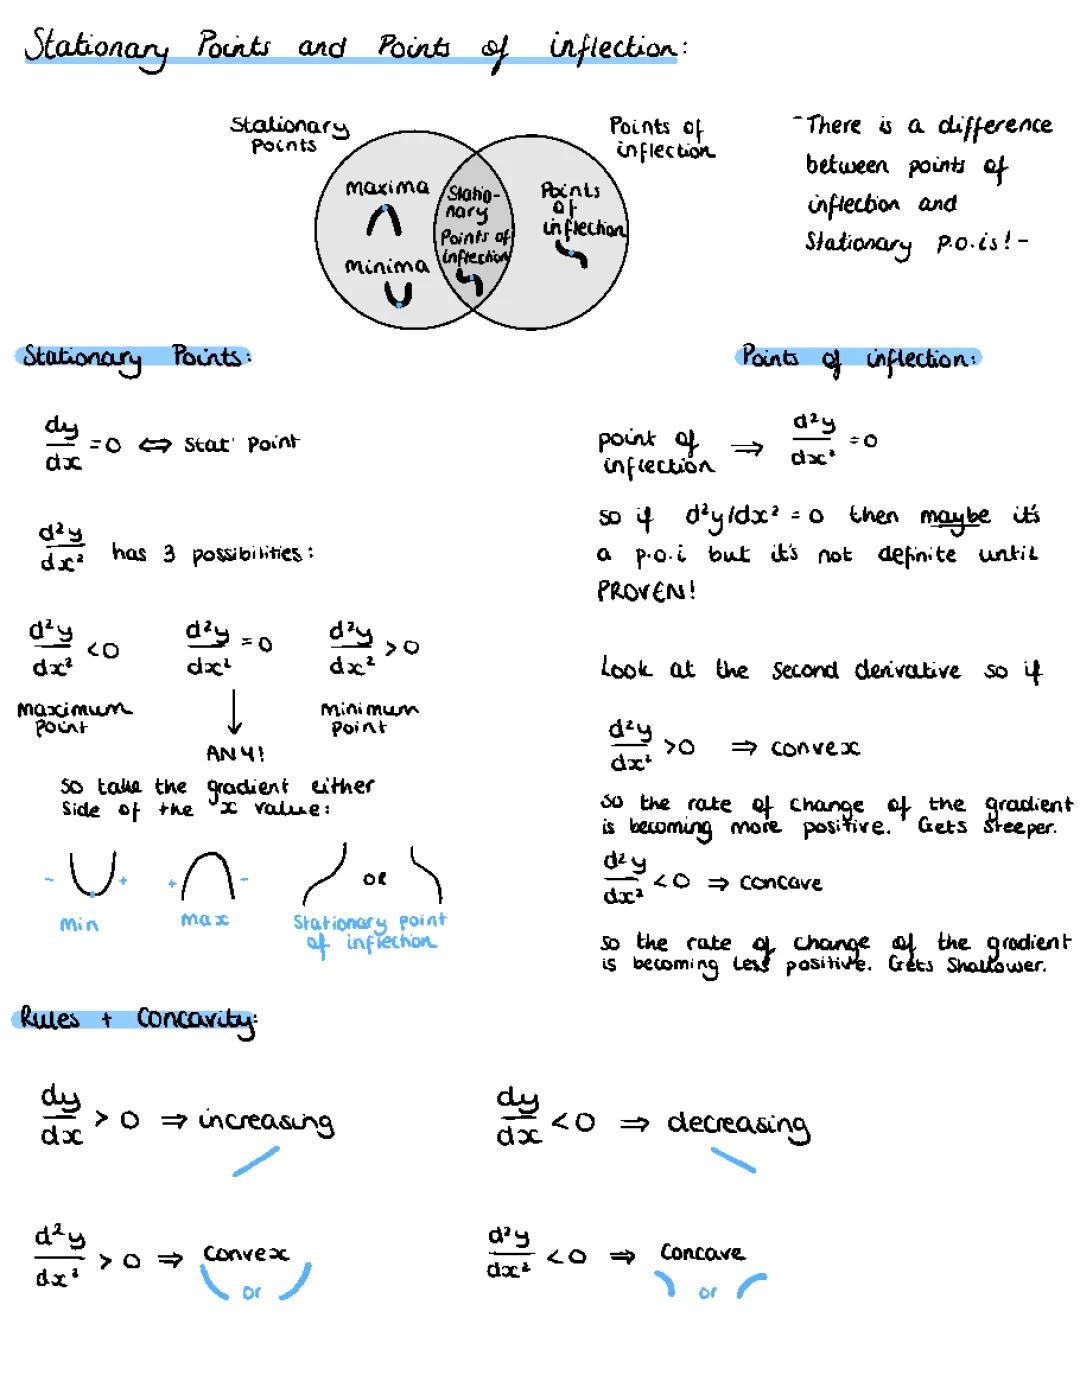 Stationary Points and Points of inflection:
Stationary Points
Points of inflection
maxima
minima
Statio-
nary
Points of
inflection
Points
of
inflection
-There is a difference
between points of
inflection and
Stationary p.o.is!-
Stationary Points:
dy/dx = 0 ⇔ Stat' Point
d²y/dx² has 3 possibilities:
d²y/dx² < 0
maximum
Point
d²y/dx² = 0
ANY!
d²y/dx² > 0
minimum
Point
So take the gradient either
side of the x value:
- +
min
+ -
max
or
Stationary point
of inflection
Points of inflection:
point of
inflection ⇒ d²y/dx² = 0
so if d²y/dx² = 0 then maybe it's
a p.o.i but it's not definite until
PROVEN!
Look at the second derivative so if
d²y/dx² >0 ⇒ convex
so the rate of change of the gradient
is becoming more positive. Gets steeper.
d²y/dx² <0 ⇒ concave
so the rate of change of the gradient
is becoming less positive. Gets Shallower.
Rules + Concavity:
dy/dx > 0 ⇒ increasing
dy/dx < 0 ⇒ decreasing
d²y/dx² > 0 ⇒ convex
or
d²y/dx² < 0 ⇒ Concave
or